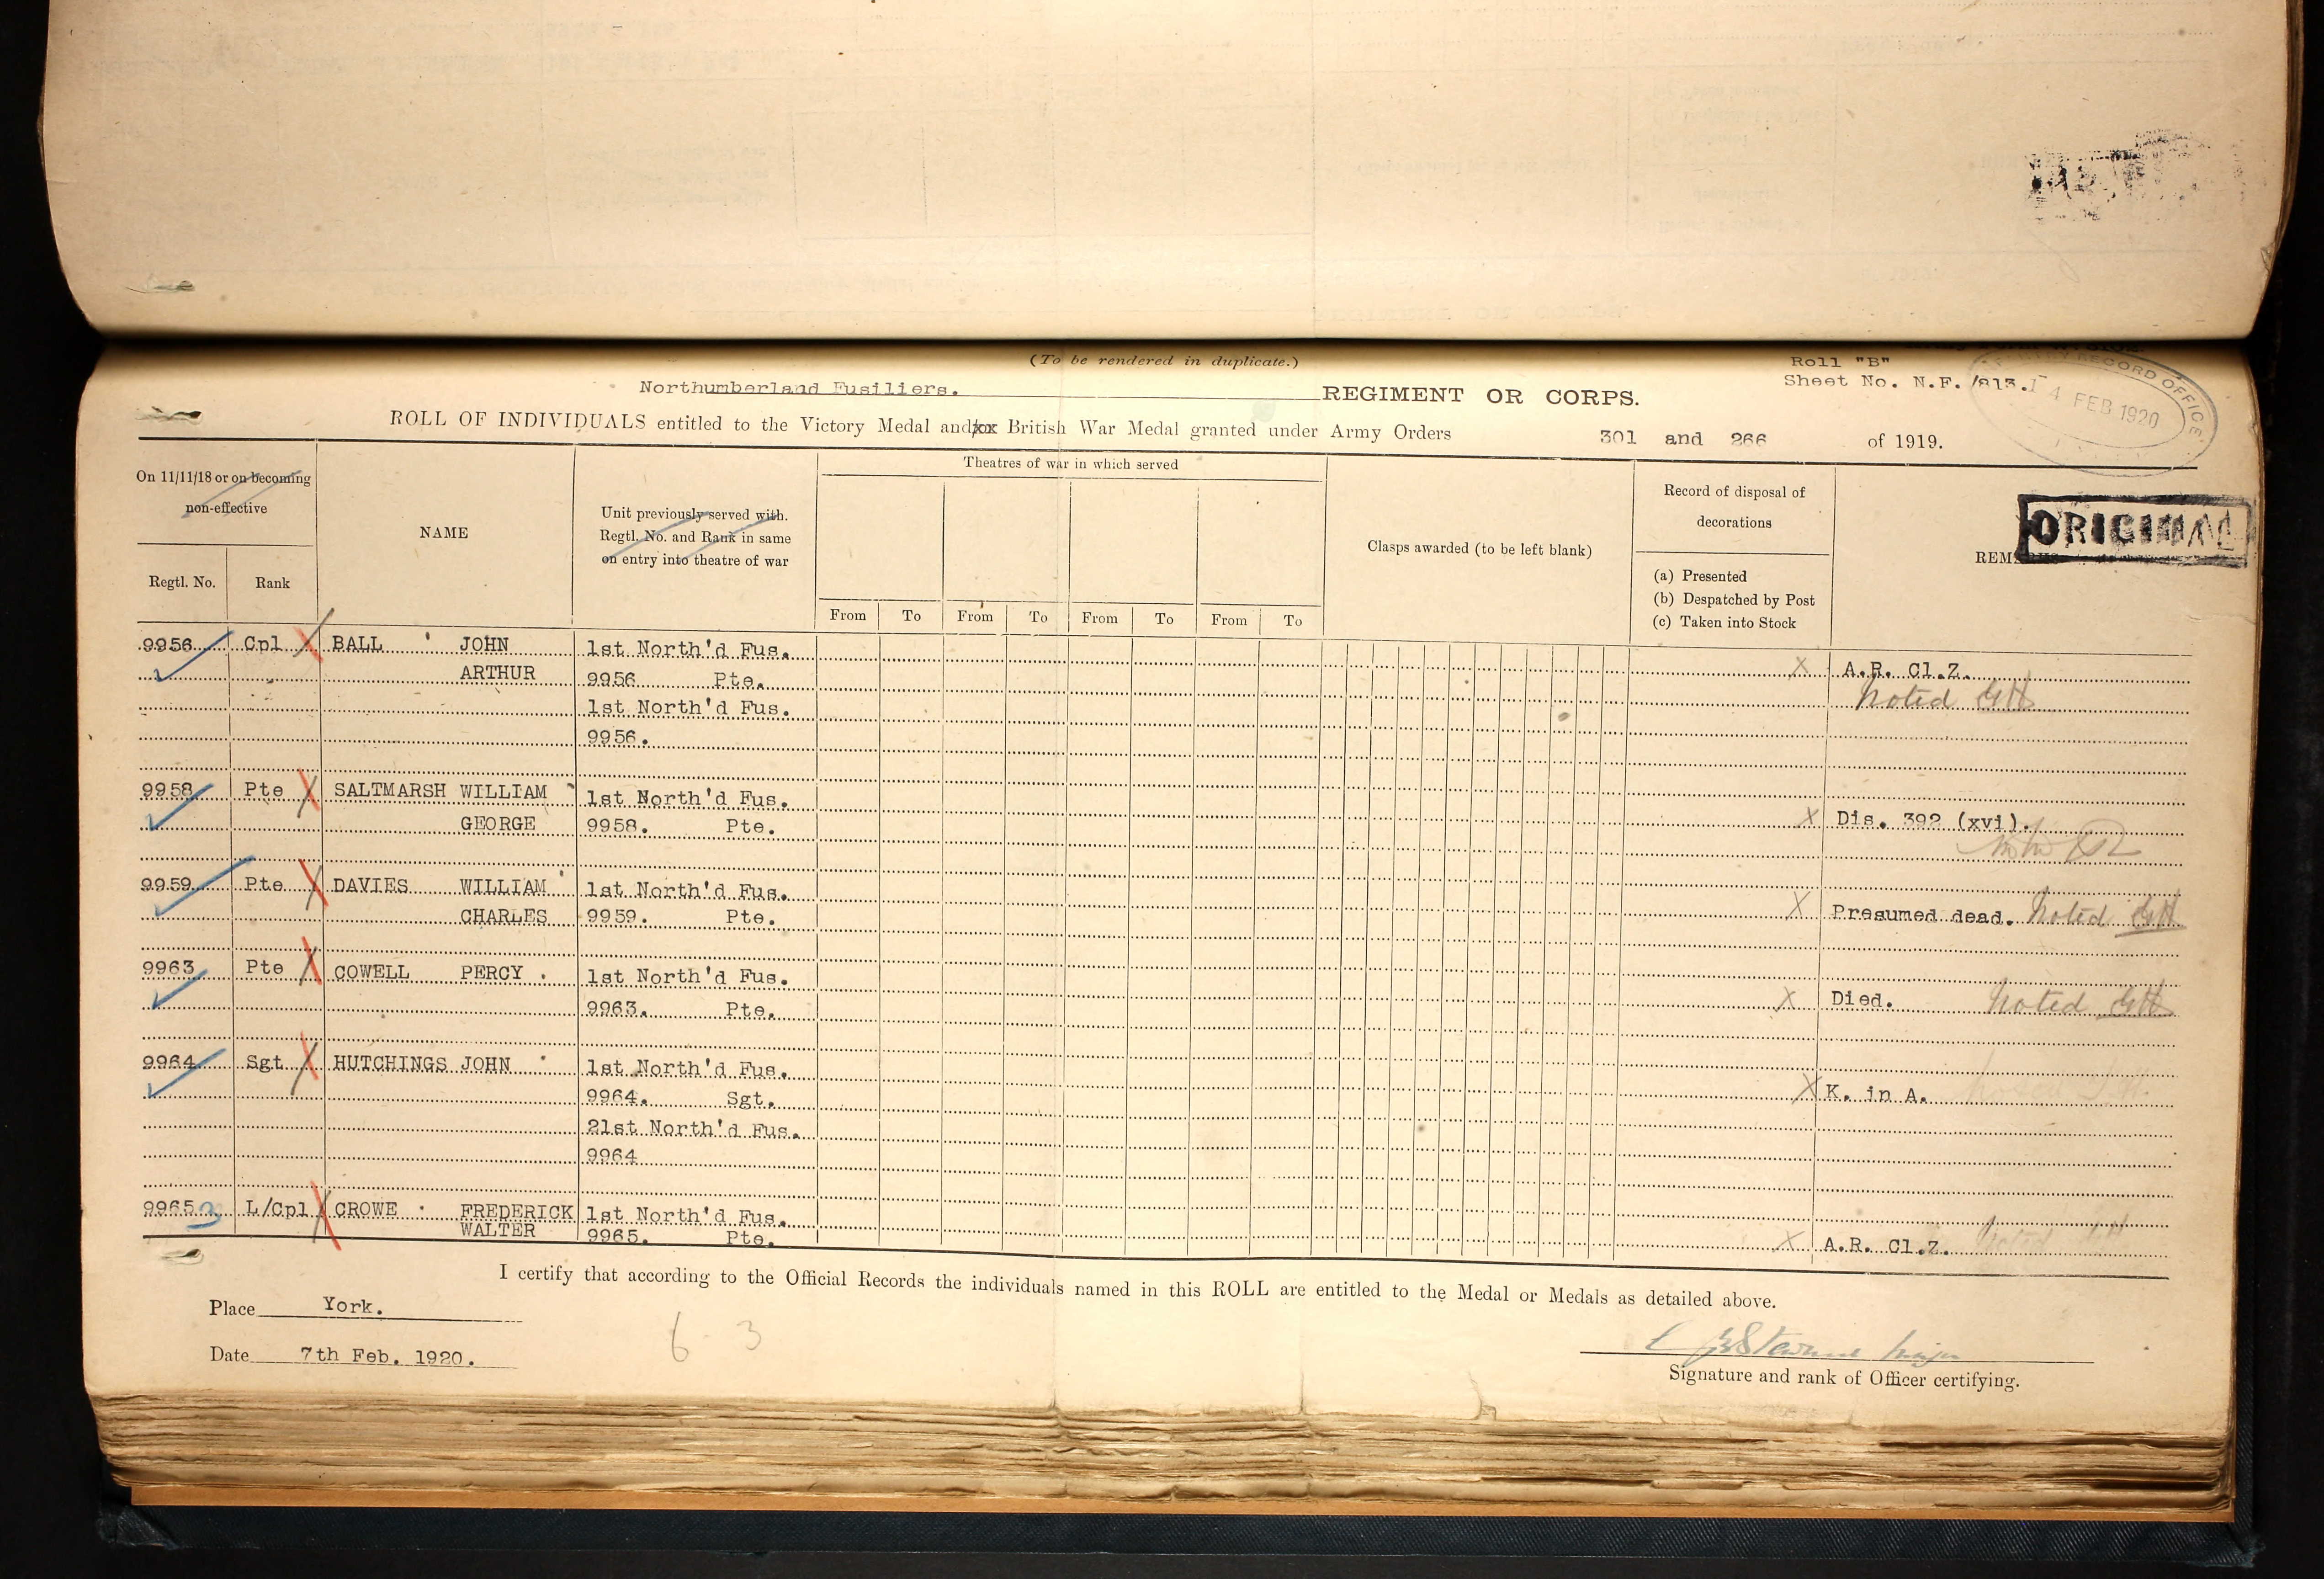 (To be rendered in duplicate.)
Roll "B"
Northumberland Fusiliers. REGIMENT OR CORPS.
Sheet No. N.F. /813.
4 FEB 1920
RECORD OFFICE
ROLL OF INDIVIDUALS entitled to the Victory Medal and/or British War Medal granted under Army Orders 301 and 266 of 1919.
ORIGINAL
On 11/11/18 or on becoming
non-effective
Regtl. No.
Rank
NAME
Unit previously served with.
Regtl. No. and Rank in same
on entry into theatre of war
Theatres of war in which served
From To From To From To From To
Clasps awarded (to be left blank)
Record of disposal of
decorations
(a) Presented
(b) Despatched by Post
(c) Taken into Stock
REMARKS
9956 Cpl X BALL JOHN 1st North'd Fus.
ARTHUR 9956 Pte. X A.R. Cl.Z.
1st North'd Fus. Noted GH
9956.
9958 Pte X SALTMARSH WILLIAM 1st North'd Fus.
GEORGE 9958. Pte. X Dis. 392 (xvi).
9959 Pte X DAVIES WILLIAM 1st North'd Fus.
CHARLES 9959. Pte. X Presumed dead. Noted GH
9963 Pte X COWELL PERCY. 1st North'd Fus.
9963. Pte. X Died. Noted GH
9964 Sgt X HUTCHINGS JOHN 1st North'd Fus.
9964. Sgt. X K. in A. Noted
21st North'd Fus.
9964
9965 3 L/Cpl X CROWE FREDERICK 1st North'd Fus.
WALTER 9965. Pte. X A.R. Cl.Z. Noted
I certify that according to the Official Records the individuals named in this ROLL are entitled to the Medal or Medals as detailed above.
Place York.
6 3
Date 7th Feb. 1920.
Signature and rank of Officer certifying.